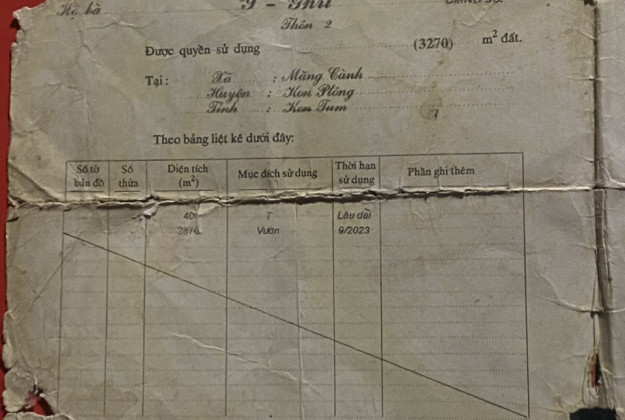 Hộ bà
Y - Thu
Thôn 2
Được quyền sử dụng (3270) m² đất.
Tại : Xã : Măng Cành
Huyện : Kon Plông
Tỉnh : Kon Tum
Theo bảng liệt kê dưới đây:
Số tờ bản đồ Số thửa Diện tích (m²) Mục đích sử dụng Thời hạn sử dụng Phần ghi thêm
T Lâu dài
Vườn 9/2023